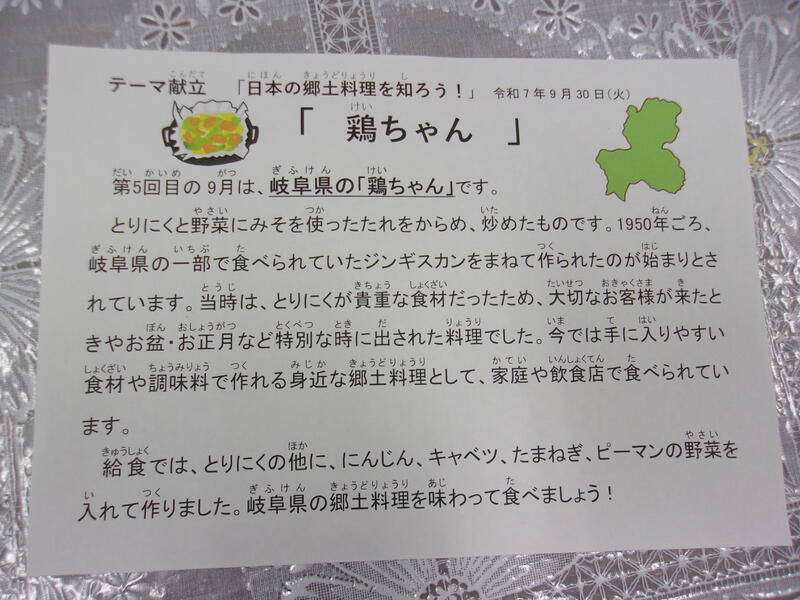 テーマ献立 「日本の郷土料理を知ろう！」 令和7年9月30日(火)
「 鶏ちゃん 」
第5回目の9月は、岐阜県の「鶏ちゃん」です。
とりにくと野菜にみそを使ったたれをからめ、炒めたものです。1950年ごろ、
岐阜県の一部で食べられていたジンギスカンをまねて作られたのが始まりとさ
れています。当時は、とりにくが貴重な食材だったため、大切なお客様が来たと
きやお盆・お正月など特別な時に出された料理でした。今では手に入りやすい
食材や調味料で作れる身近な郷土料理として、家庭や飲食店で食べられてい
ます。
給食では、とりにくの他に、にんじん、キャベツ、たまねぎ、ピーマンの野菜を
入れて作りました。岐阜県の郷土料理を味わって食べましょう！